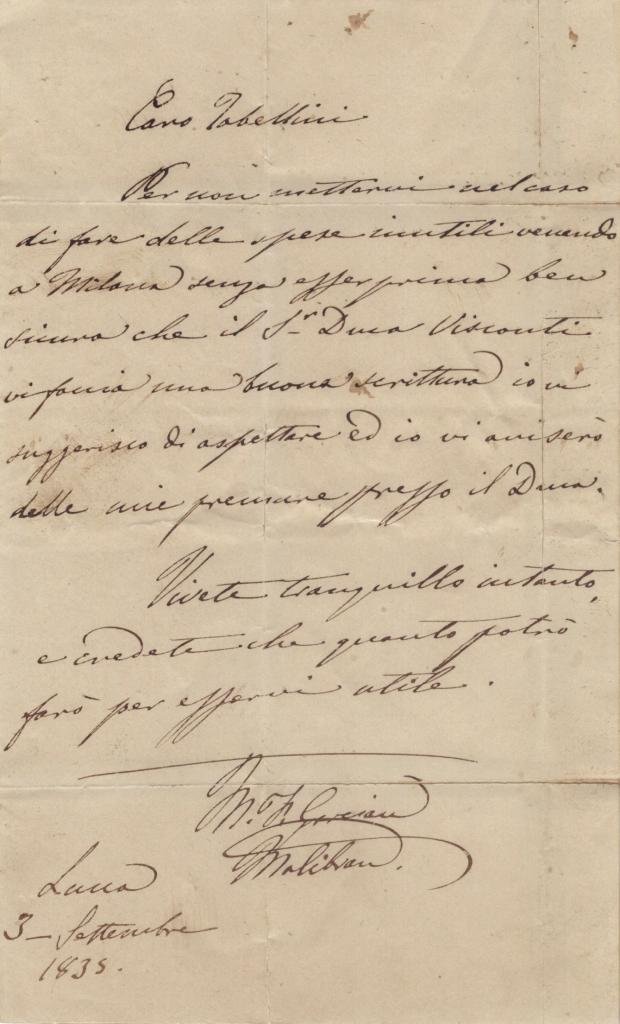 Caro Tabellini
Per non mettervi nel caso
di fare delle spese inutili venendo
a Milano senza esser prima ben
sicuro che il S.r Duca Visconti
vi faccia una buona scrittura io vi
suggerisco di aspettare ed io vi aviserò
delle mie premure presso il Duca.
Vivete tranquillo intanto,
e credete che quanto potrò
farò per esservi utile.
M. F. Garcia
Malibran.
Lucca
3 - Settembre
1835.